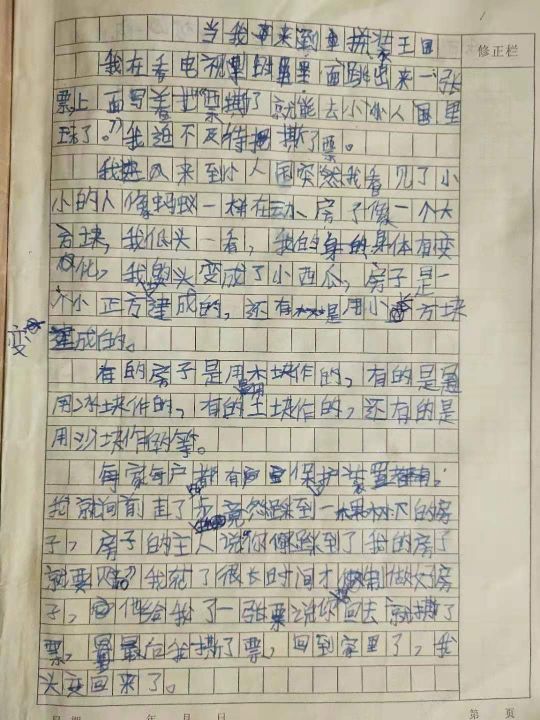 当我来到拼装王国
修正栏
我在看电视里的里面跳出来一张
票上面写着"撕了就能去小小人国里
玩了。"我迫不及待把撕了票。
我进入来到小人国突然我看见了小
小的人像蚂蚁一样在动、房子像一个大
方块,我低头一看,我的身体有变
化,我的头变成了小西瓜,房子是一
个小正方建成的,还有是用小方块
建成的。
有的房子是用木块作的,有的是
用冰块作的,有的土块作的,还有的是
用沙块作的等。
每家每户都有保护装置
我就向前走了步竟然踩到一的房
子,房子的主人说"你踩到了我的房子
就要"我花了很长时间才做好房
子,他给我了一张票说你回去就撕了
票,最后我撕了票,回到家里了,我
头变回来了。
日期 年 月 日
第 页